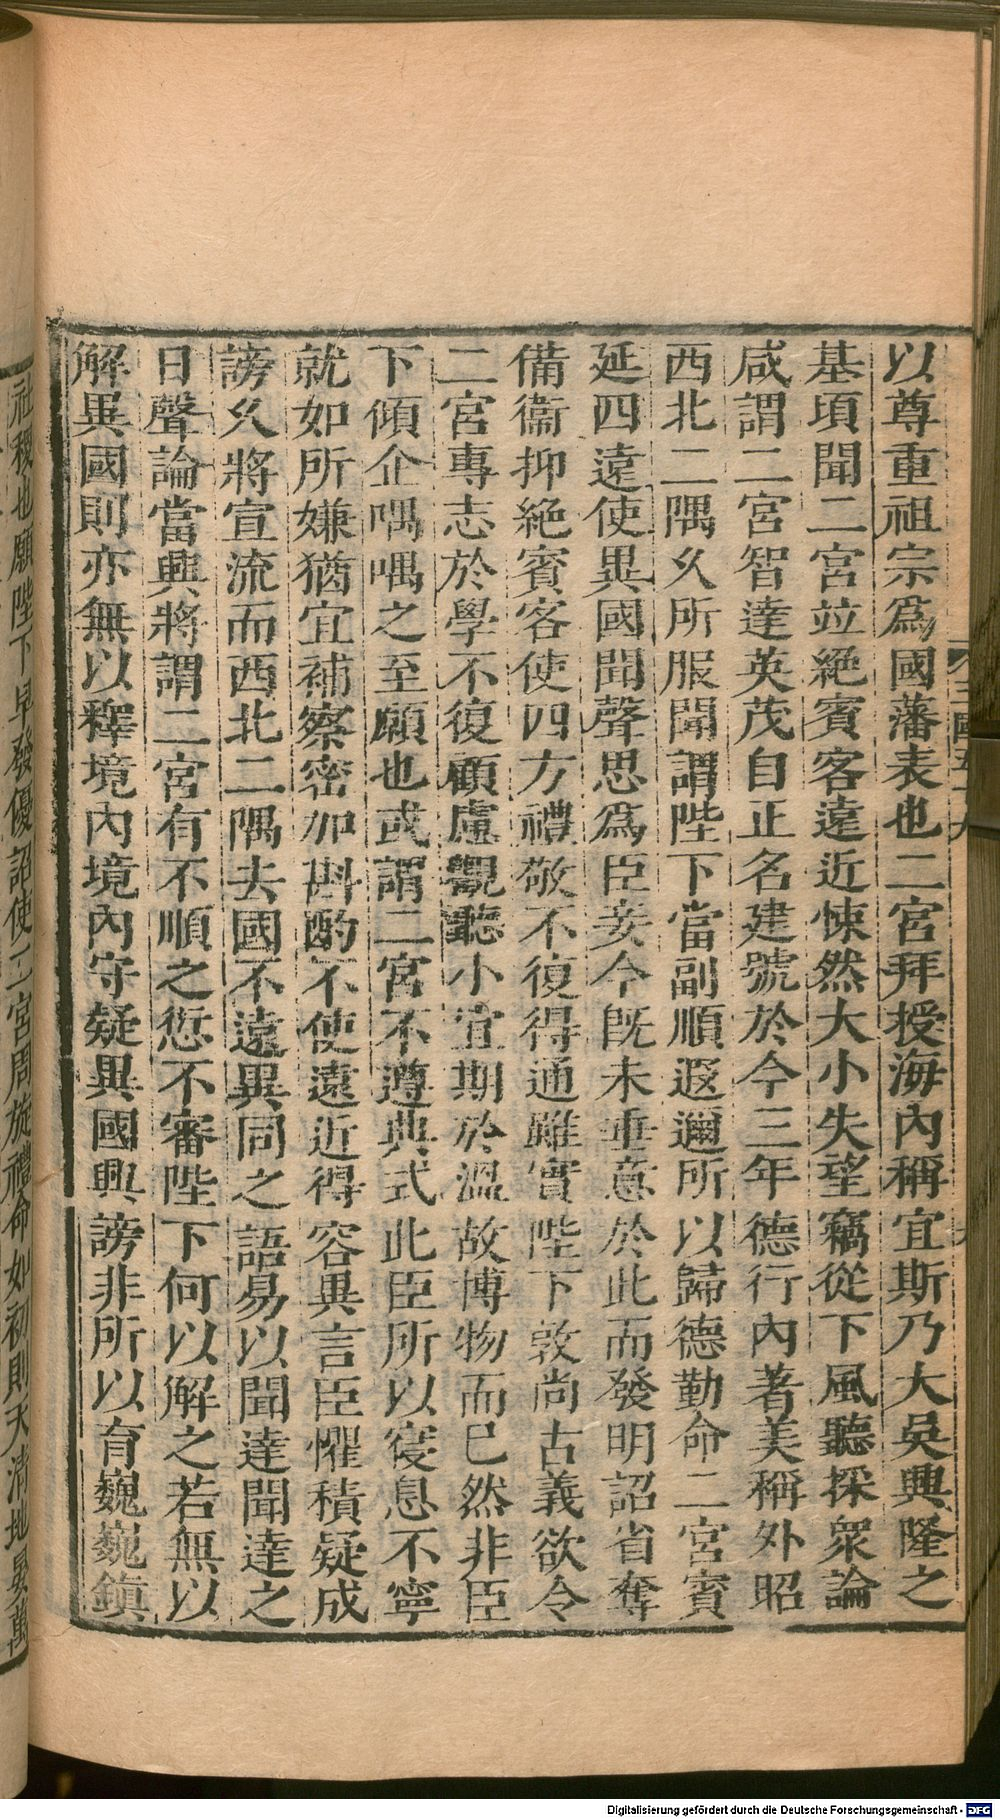 以尊重祖宗爲國藩表也二宮拜授海內稱宜斯乃大吳興隆之
基頃聞二宮竝絕賓客遠近悚然大小失望竊從下風聽採衆論
咸謂二宮智達英茂自正名建號於今三年德行內著美稱外昭
西北二隅乆所服聞謂陛下當副順遐邇所以歸德勤命二宮賓
延四遠使異國聞聲思爲臣妾今旣未垂意於此而發明詔省奪
備衞抑絕賓客使四方禮敬不復得通雖實陛下敦尚古義欲令
二宮專志於學不復顧慮觀聽小宜期於溫故博物而巳然非臣
下傾企喁喁之至願也或謂二宮不遵典式此臣所以寢息不寧
就如所嫌猶宜補察密加斟酌不使遠近得容異言臣懼積疑成
謗乆將宣流而西北二隅去國不遠異同之語易以聞達聞達之
日聲論當興將謂二宮有不順之愆不審陛下何以解之若無以
解異國則亦無以釋境內境內守疑異國興謗非所以育巍巍鎮
社稷也願陛下早發優詔使二宮周旋禮命如初則天清地晏萬
三國五十九
Digitalisierung gefördert durch die Deutsche Forschungsgemeinschaft - DFG